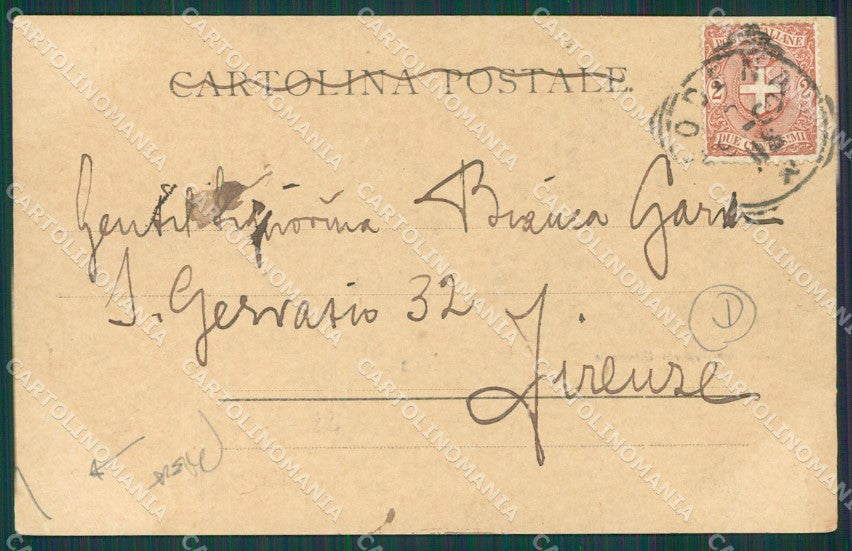 CARTOLINA POSTALE.
POSTE ITALIANE
2 2
DUE CENTESIMI
Gentil Signorina Bianca
S. Gervasio 32
D
Firenze
CARTOLINOMANIA